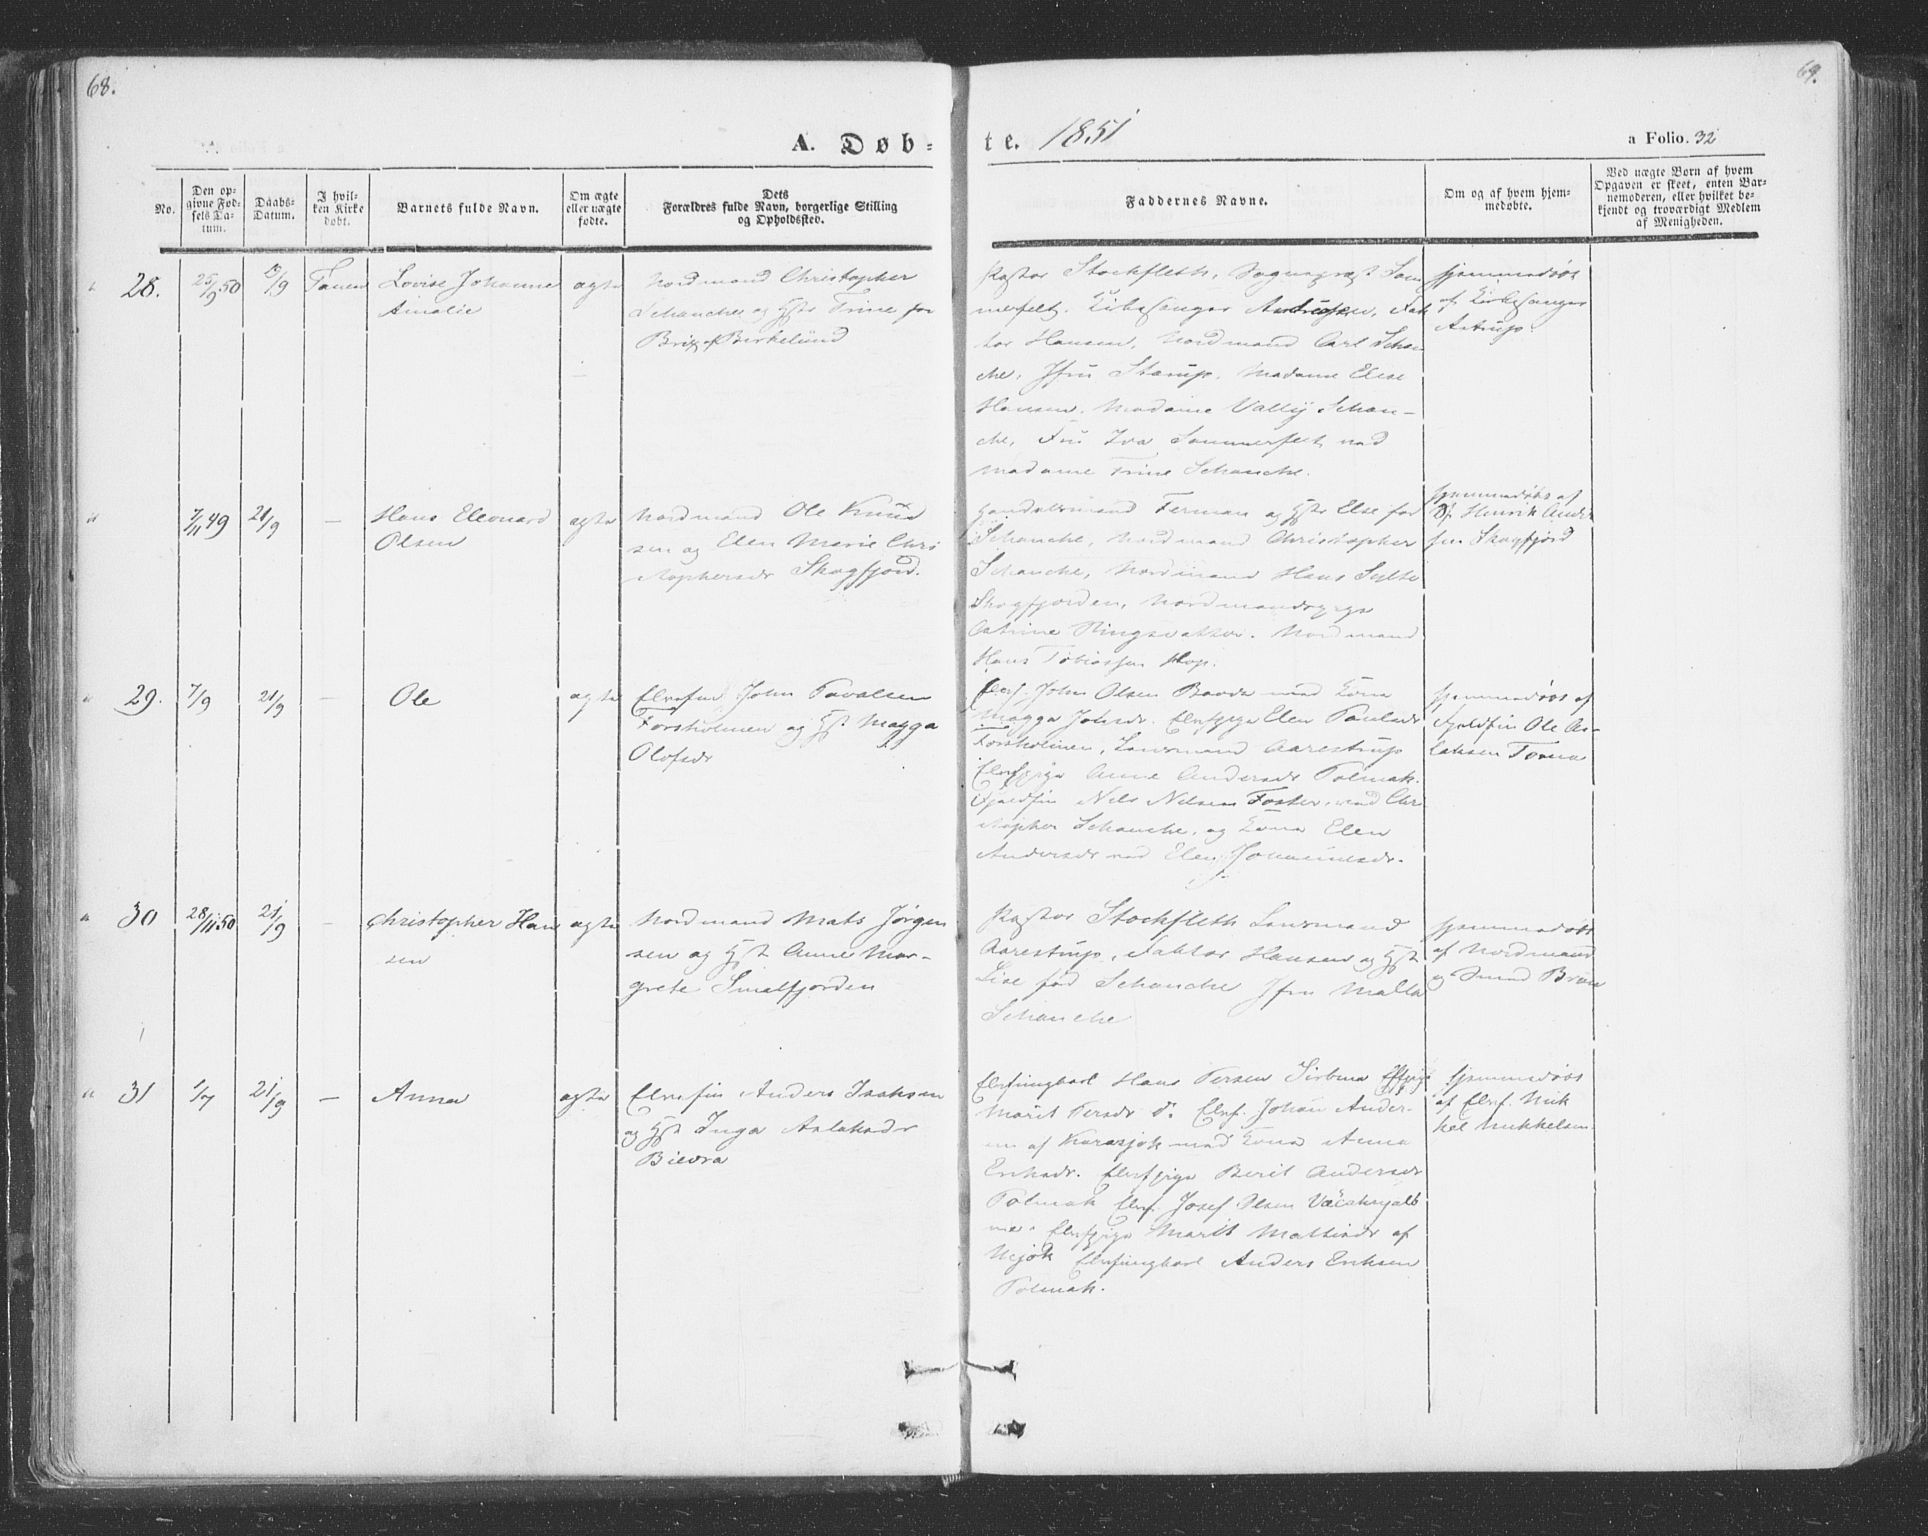 68.
69.
A. Døb-
te. 1851
a Folio. 32
No.
Den op-
givne Fød-
sels Da-
tum.
Daabs-
Datum.
I hvil-
ken Kirke
døbt.
Barnets fulde Navn.
Om ægte
eller uægte
fødte.
Dets
Forældres fulde Navn, borgerlige Stilling
og Opholdssted.
Faddernes Navne.
Om og af hvem hjem-
medøbte.
Ved uægte Børn af hvem
Opgaven er skeet, enten Bar-
nemoderen, eller hvilket be-
kjendt og troværdigt Medlem
af Menigheden.
28.
25/9 50
Tanen
Lovise Johanne
Amalie
ægte
Nordmand Christopher
Schanche og Hst Trine før
Brix af Birkelund
Pastor Stockfleth, Sognepræst Som
merfelt. Kirkesanger
tor Hansen, Nordmand Carl Schan
che, Jfru Stærup. Madame Elese
Hansen. Madame Vally Schan-
che, Fru Sommerfelt med
Madame Trine Schanche.
Hjemmedøbt
af Kirkesanger
Astrup.
7/11 49
21/9
—
Hans Eleonard
Olsen
ægte
Nordmand Ole Knud
sen og Elen Marie Chri
stophersdr Skogfjord.
Handelsmand Ferman og Hst Else før
Schanche, Nordmand Christopher
Schanche, Nordmand Hans
Skogfjorden, Nordmandspige
Catrine Ringsvatten. Nordmand
Hans Tobiassen Hop.
Hjemmedøbt af
Henrik Ander
sen Skogfjord
29.
7/9
21/9
—
Ole
ægte
Elvefin John Povelsen
Forsholmen og Hst Magga
Olofsdr
Elvf. John Olsen med Kona
Magga Johnsdr. Elvfpige Elen Paulsdr
Forsholmen, Lensmand Aarestrup
Elvfpige Anne Andersdr Polmak.
Fjeldfin Nils Nilsen med Chri
stopher Schanche, og Kona Elen
Andersdr med Elen Johannesdr.
Hjemmedøbt af
Fjeldfin Ole As-
laksen Torma
30
28/11 50
21/9
—
Christopher Han
sen
ægte
Nordmand Mats Jørgen
sen og Hst Anne Mar-
grete Smalfjorden
Pastor Stockfleth Lensmand
Aarestrup, Faktor Hansen og Hst
Lise fød Schanche Jfru Malla
Schanche
Hjemmedøbt
af Nordmand
31
1/7
21/9
—
Anna
ægte
Elvefin Anders Isaksen
og Hst Inga Aslaksdr
Bievra
Elvfingkarl Hans Persen Sirbma Elfpige
Marit Persdr do. Elvf. Johan Ander-
sen af Karasjok med Kona Anna
Eriksdr. Elvfpige Berit Andersdr
Polmak Elvf. Josef Olsen
Elvfpige Marit Mathisdr af
Utsjok Elvfingkarl Anders Eriksen
Polmak.
Hjemmedøbt
af Elvf. Mik
kel Mikkelsen